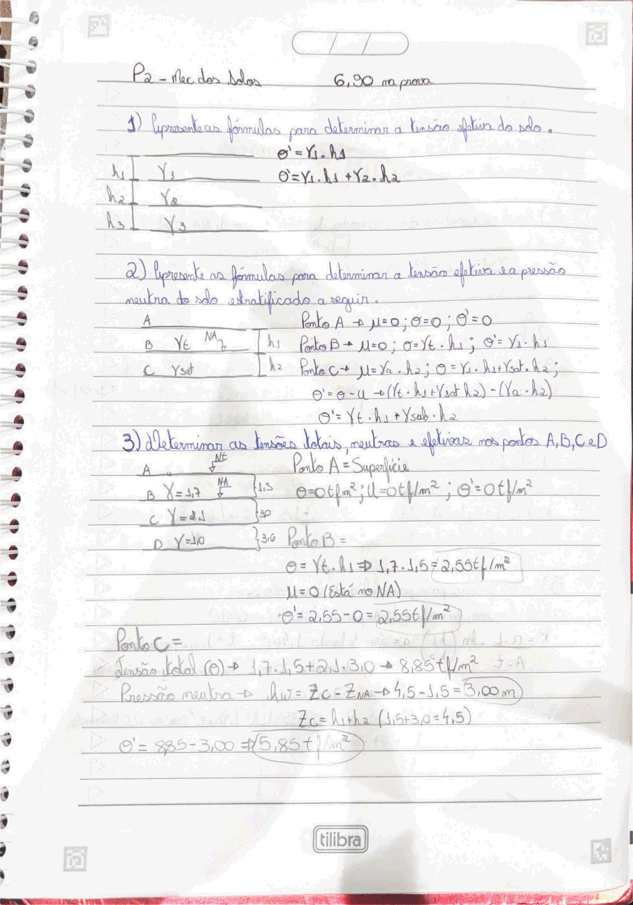 P2 - Mec dos Solos 6,90 na prova
1) Apresente as fórmulas para determinar a tensão efetiva do solo.
h1 γ1 σ' = γ1 . h1
h2 γ2 σ' = γ1 . h1 + γ2 . h2
h3 γ3
2) Apresente as fórmulas para determinar a tensão efetiva e a pressão
neutra do solo estratificado a seguir.
A Ponto A → μ=0 ; σ=0 ; σ'=0
B γt NA h1 Ponto B → μ=0 ; σ=γt . h1 ; σ' = γ1 . h1
C γsat h2 Ponto C → μ = γa . h2 ; σ = γ1 . h1 + γsat . h2 ;
σ' = σ - u → (γt . h1 + γsat h2) - (γa . h2)
σ' = γt . h1 + γsub . h2
3) Determinar as tensões totais, neutras e efetivas nos pontos A, B, C e D
A NT Ponto A = Superfície
B γ = 1,7 NA 1,5 σ = 0 tf m² ; U = 0 tf/m² ; σ' = 0 tf/m²
C γ = 2,1 3,0
D Ponto B =
σ = γt . h1 ⇒ 1,7 . 1,5 = 2,55 tf/m²
μ = 0 (Está no NA)
σ' = 2,55 - 0 = 2,55 tf/m²
Ponto C =
Tensão total (σ) → 1,7 . 1,5 + 2,1 . 3,0 → 8,85 tf/m²
Pressão neutra → hw = Zc = ZNA → 4,5 - 1,5 = 3,00 m
Zc = h1 + h2 (1,5 + 3,0 = 4,5)
σ' = 8,85 - 3,00 ⇒ 5,85 tf/m²
tilibra